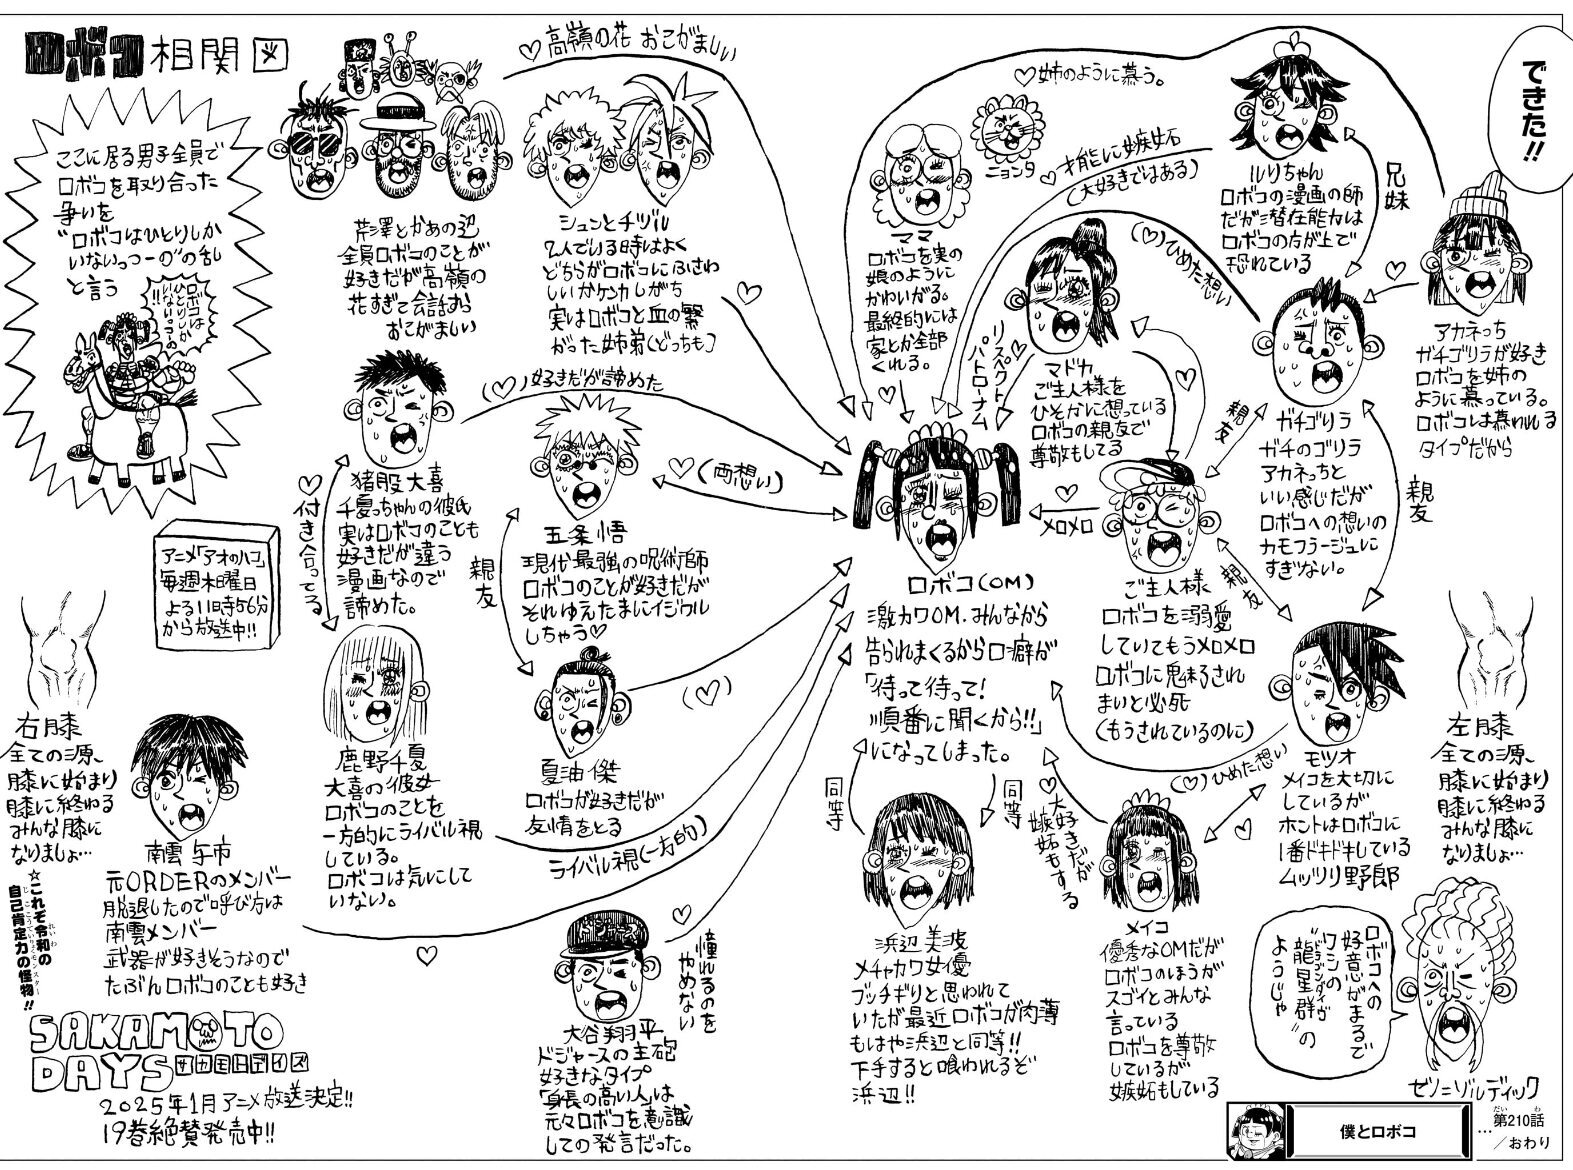 ロボコ相関図
できた!!
ここに居る男子全員で
ロボコを取り合った
争いを
"ロボコはひとりしか
いないっつーの"の乱
と言う
ロボコは
ひとりしか
いないっつーの!!
芹澤とかあの辺
全員ロボコのことが
好きだが高嶺の
花すぎて会話すら
おこがましい
♡高嶺の花 おこがましい
シュンとチヅル
2人でいる時はよく
どちらがロボコにふさわ
しいかケンカしがち
実はロボコと血の繋
がった姉弟(どっちも)
♡
ママ
ロボコを実の
娘のように
かわいがる。
最終的には
家とか全部
くれる。
♡
ニョンタ
♡
♡姉のように慕う。
才能に嫉妬
(大好きではある)
ルリちゃん
ロボコの漫画の師
だが潜在能力は
ロボコの方が上で
恐れている
兄妹
アカネっち
ガチゴリラが好き
ロボコを姉の
ように慕っている。
ロボコは慕われる
タイプだから
♡
(♡)ひめた想い
マドカ
ご主人様を
ひそかに想っている
ロボコの親友で
尊敬もしてる
リスペクト♡
パトローナム
♡
ガチゴリラ
ガチのゴリラ
アカネっちと
いい感じだが
ロボコへの想いの
カモフラージュに
すぎない。
親友
親友
猪股大喜
千夏っちゃんの彼氏
実はロボコのことも
好きだが違う
漫画なので
諦めた。
(♡)好きだが諦めた
♡付き合ってる
五条悟
現代最強の呪術師
ロボコのことが好きだが
それゆえたまにイジワル
しちゃう♡
♡(両想い)
親友
ロボコ(OM)
激カワOM.みんなから
告られまくるから口癖が
「待って待って!
順番に聞くから!!」
になってしまった。
♡
メロメロ
ご主人様
ロボコを溺愛
していてもうメロメロ
ロボコに魅了され
まいと必死
(もうされているのに)
親友
アニメ「アオのハコ」
毎週木曜日
よる11時56分
から放送中!!
右膝
全ての源、
膝に始まり
膝に終わる
みんな膝に
なりましょ…
鹿野千夏
大喜の彼女
ロボコのことを
一方的にライバル視
している。
ロボコは気にして
いない。
ライバル視(一方的)
夏油傑
ロボコが好きだが
友情をとる
(♡)
モツオ
メイコを大切に
しているが
ホントはロボコに
1番ドキドキしている
ムッツリ野郎
(♡)ひめた想い
♡
左膝
全ての源、
膝に始まり
膝に終わる
みんな膝に
なりましょ…
南雲与市
元ORDERのメンバー
脱退したので呼び方は
南雲メンバー
武器が好きそうなので
たぶんロボコのことも好き
♡
☆これぞ令和の
自己肯定力の怪物!!
大谷翔平
ドジャースの主砲
好きなタイプ
「身長の高い人」は
元々ロボコを意識
しての発言だった。
♡
憧れるのを
やめない
同等
同等
浜辺美波
メチャカワ女優
ブッチギリと思われて
いたが最近ロボコが肉薄
もはや浜辺と同等!!
下手すると喰われるぞ
浜辺!!
♡大好きだが
嫉妬もする
メイコ
優秀なOMだが
ロボコのほうが
スゴイとみんな
言っている
ロボコを尊敬
しているが
嫉妬もしている
ロボコへの
好意がまるで
ワシの
"龍星群"の
ようじゃ
ゼノ=ゾルディック
SAKAMOTO
DAYS サカモトデイズ
2025年1月アニメ放送決定!!
19巻絶賛発売中!!
僕とロボコ
…第210話
／おわり